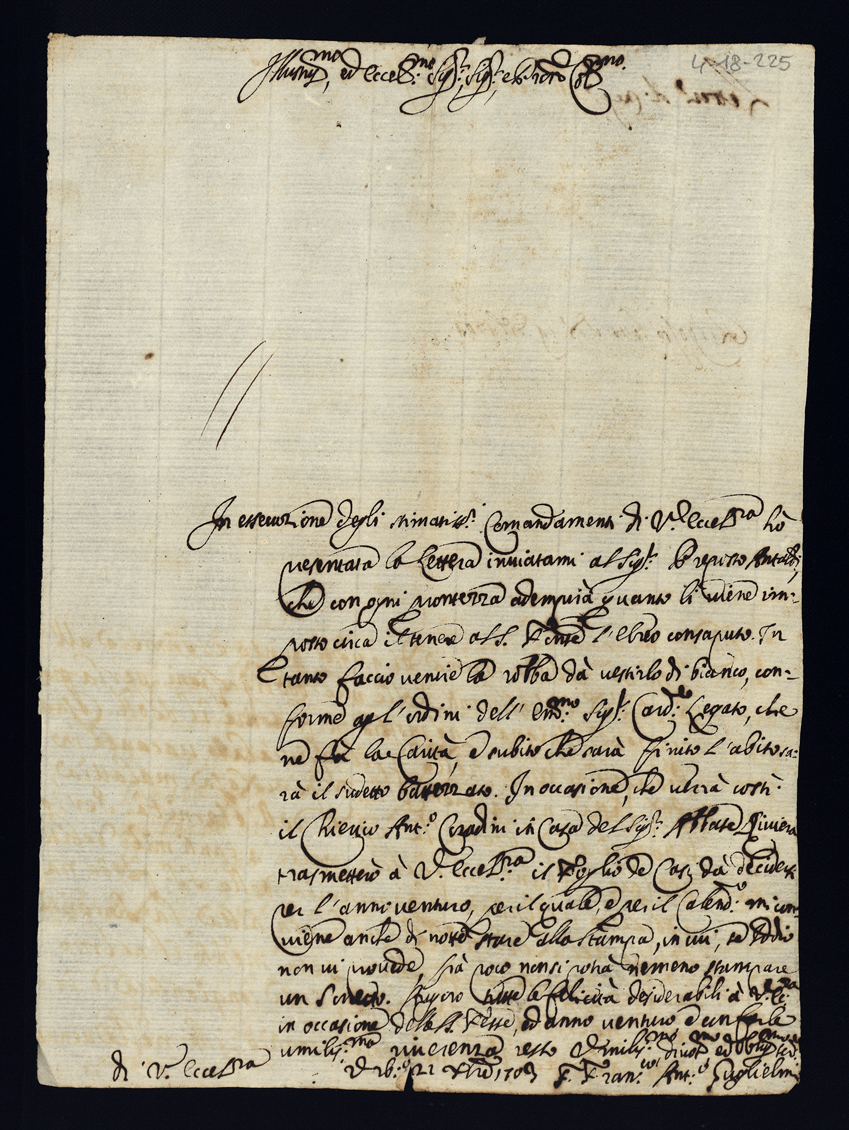 4-18-225
Illustriss.mo, ed Eccell.mo Sig.r, Sig.r, e P.rone Col.mo
In essecuzione degli stimatiss.i Comandamenti di V.a Eccell.za hò
presentata la Lettera inviatami al Sig.r Preposto Antaldi,
che con ogni prontezza adempirà quanto li viene im-
posto circa il tenere al S. Fonte l'Ebreo consaputo. In
tanto faccio venire la robba dà vestirlo di bianco, con-
forme gl'ordini dell'Em.mo Sig.r Card.le Legato, che
ne fà la Carità, e subito che sarà finito l'abito sa-
rà il sudetto battezzato. In occasione, che verrà costì
il Chierico Ant.o Coradini in Casa del Sig.r Abbate Riviera
trasmetterò à V. Eccell.za il Foglio de Casi dà decidersi
per l'anno venturo, per il quale, e per il Calend.o mi con-
viene anche di notte stare alla stampa, in cui, se Iddio
non vi provede, frà poco non si potrà nemeno stampare
un Sonetto. Auguro tutte le felicità desiderabili à V. Ecc.za
in occasione delle S. Feste, ed anno venturo e con farle
umiliss.ma riverenza resto
di V. Eccell.za
Umiliss.mo Divot.mo ed Obblig.mo Ser.e
Urb.o 22 Xbre 1703 F. Fran.co Ant.o Guglielmi